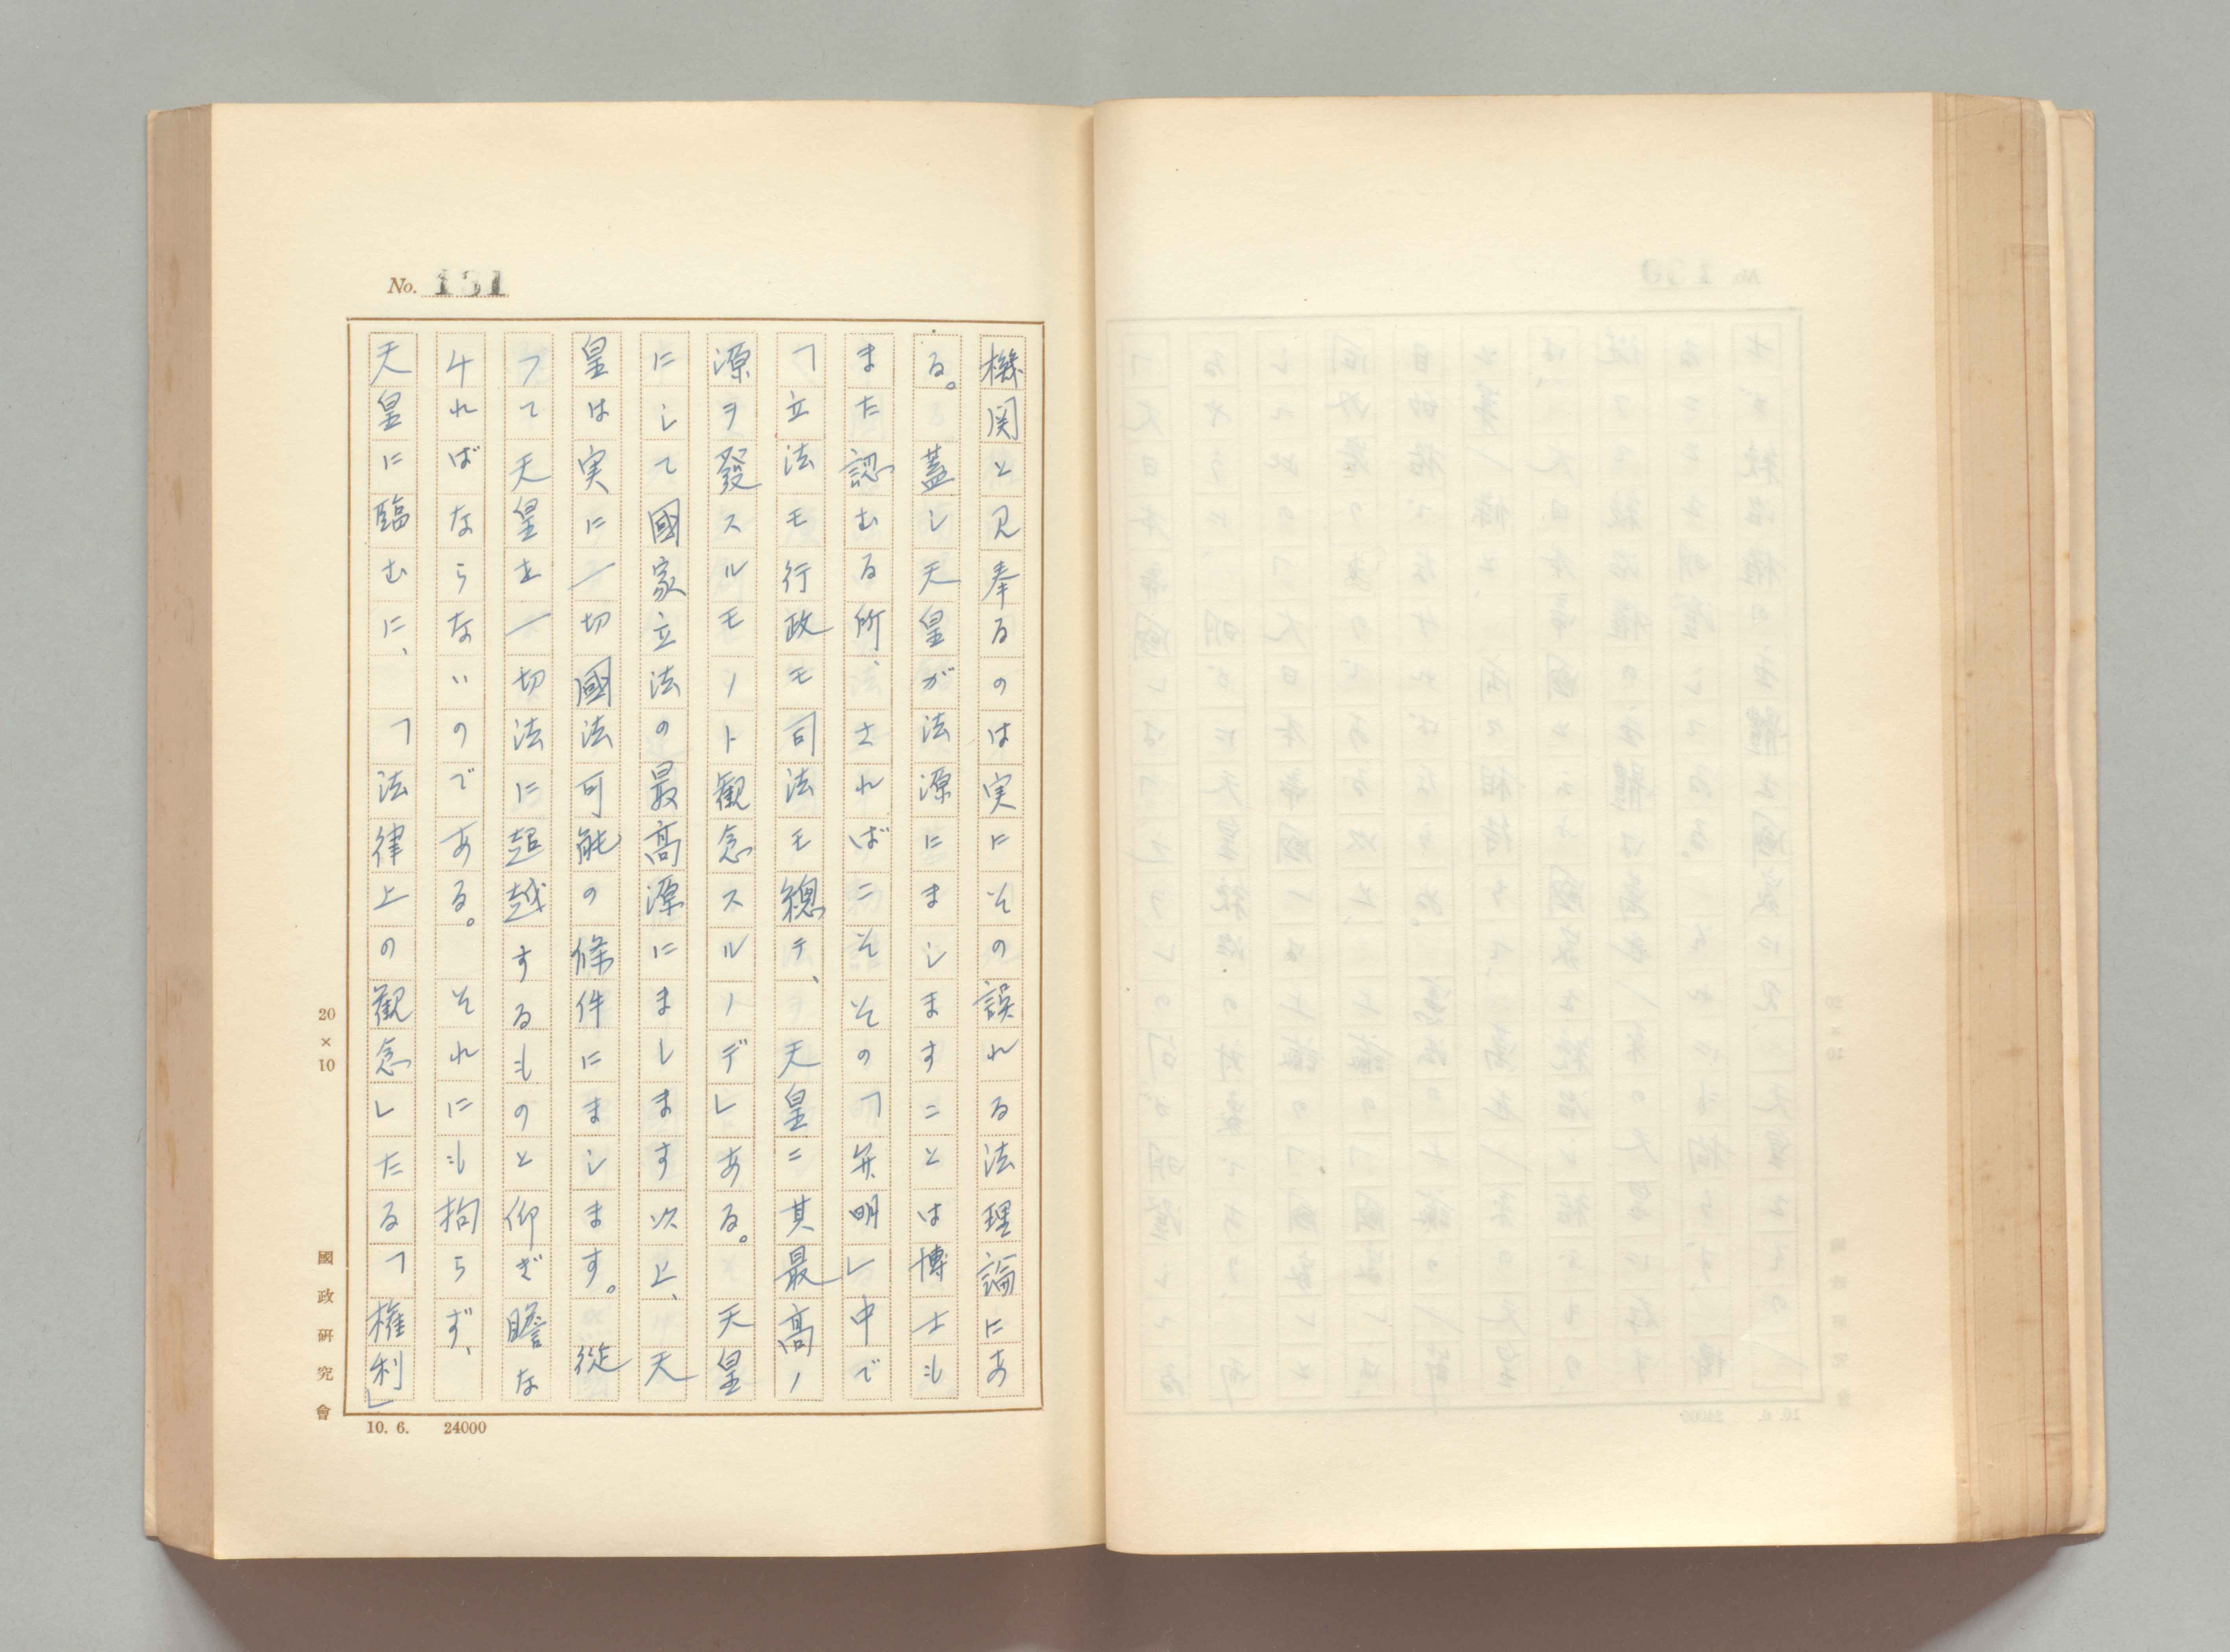 No. 131
機関と見奉るのは実にその誤れる法理論にあ
る。蓋し天皇が法源にましますことは博士も
また認むる所、さればこその「弁明」中で
「立法モ行政モ司法モ總テ、天皇ニ其最高ノ
源ヲ發スルモノト観念スルノデ」ある。天皇
にして國家立法の最高源にまします以上、天
皇は実に一切國法可能の條件にまします。従
つて天皇を一切法に超越するものと仰ぎ瞻な
ければならないのである。それにも拘らず、
天皇に臨むに、「法律上の観念したる「権利」
20×10
國政研究會
10. 6. 24000